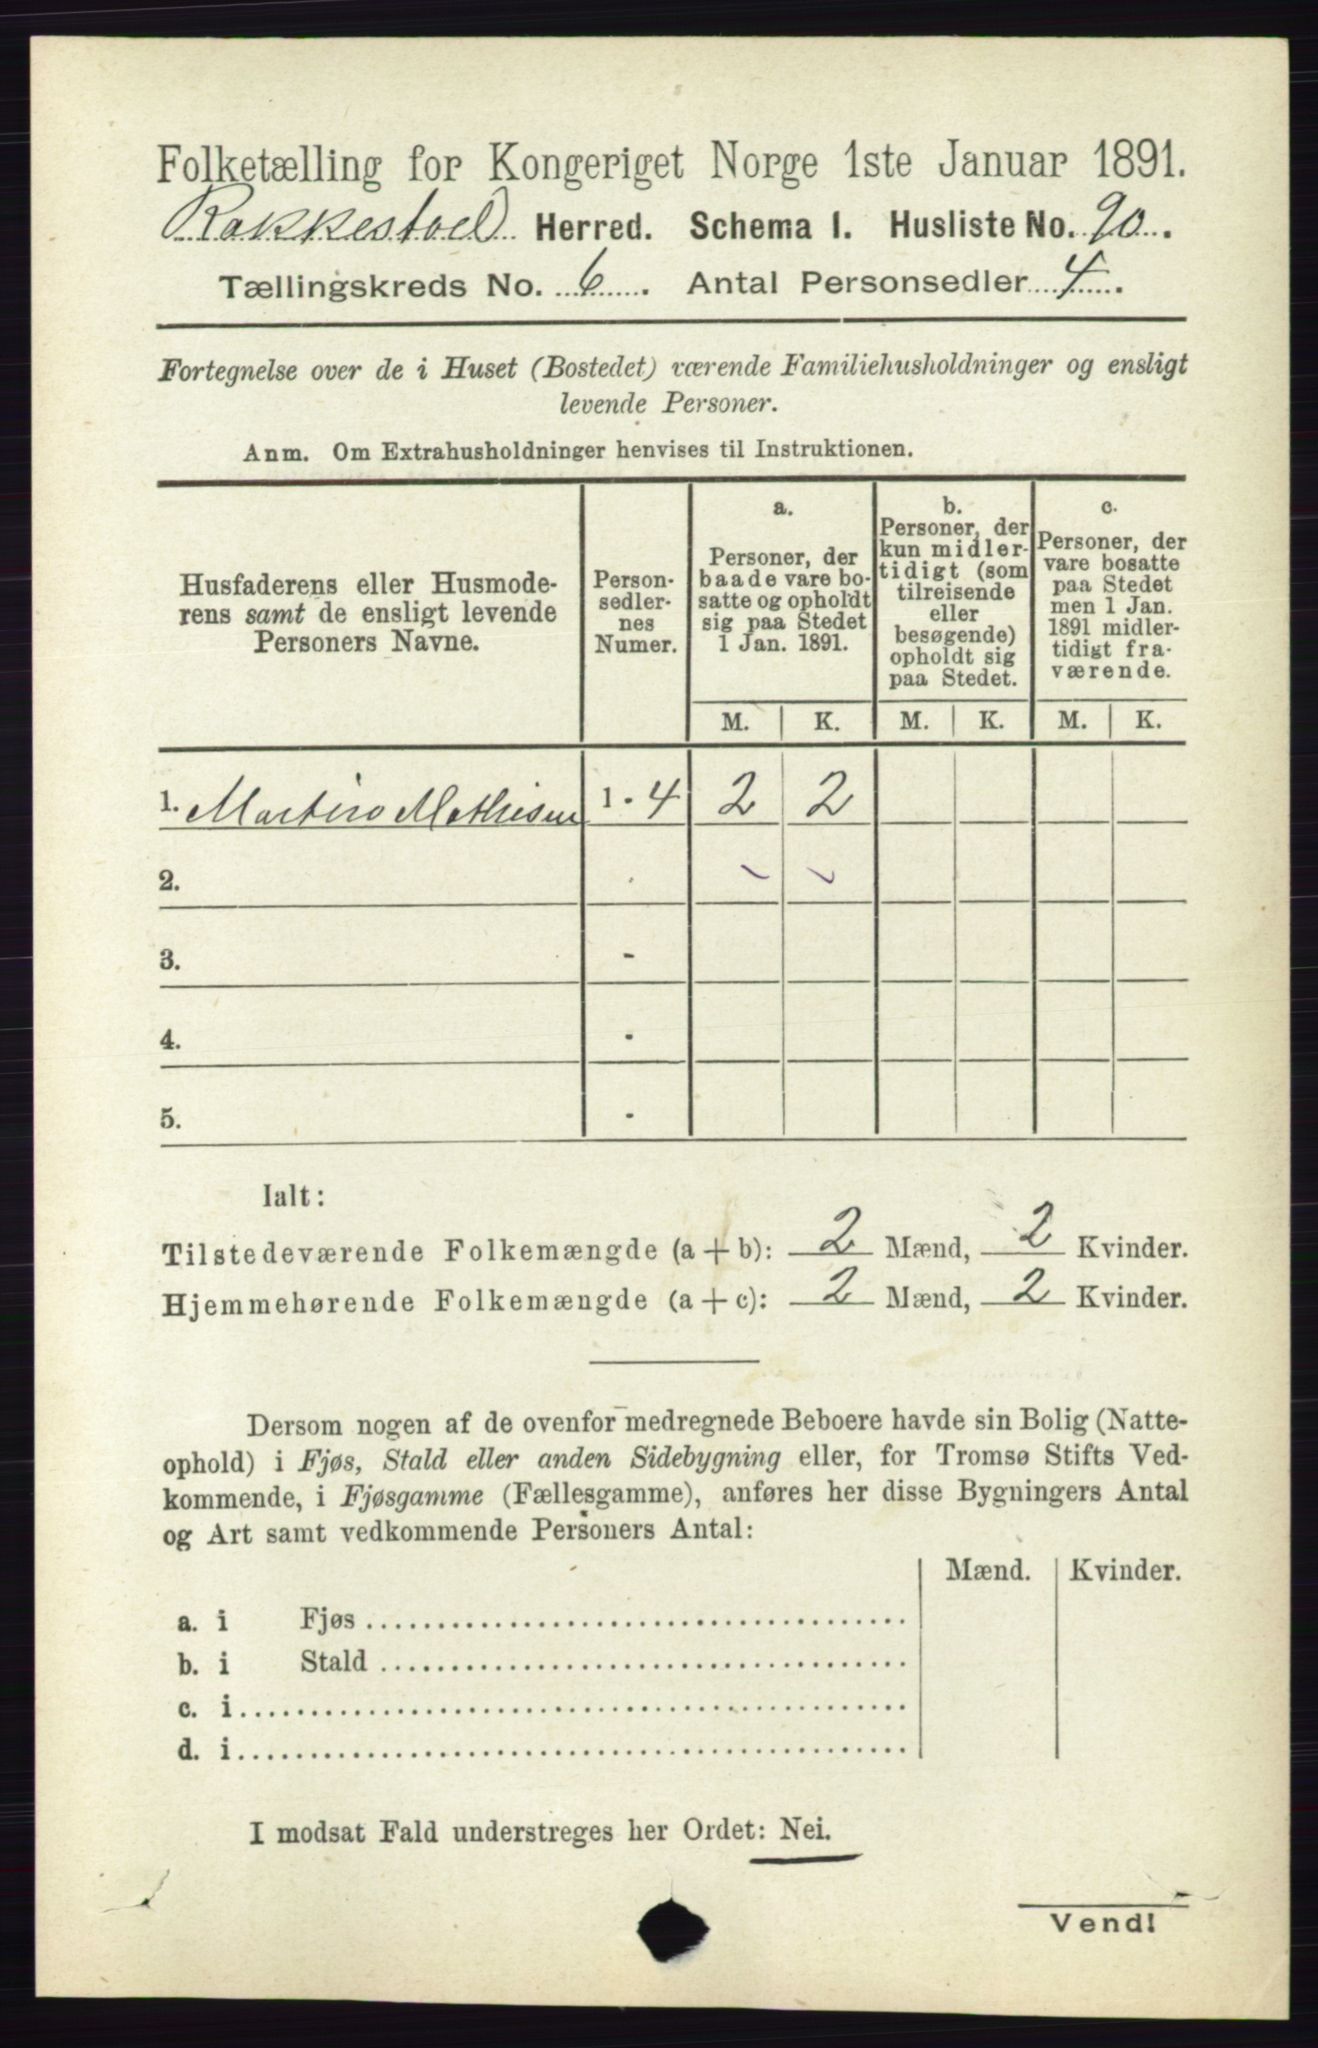 Folketælling for Kongeriget Norge 1ste Januar 1891.
Rakkestad Herred. Schema 1. Husliste No. 90.
Tællingskreds No. 6. Antal Personsedler 4.
Fortegnelse over de i Huset (Bostedet) værende Familiehusholdninger og ensligt
levende Personer.
Anm. Om Extrahusholdninger henvises til Instruktionen.
Husfaderens eller Husmode-
rens samt de ensligt levende
Personers Navne.
Person-
sedler-
nes
Numer.
a.
Personer, der
baade vare bo-
satte og opholdt
sig paa Stedet
1 Jan. 1891.
b.
Personer, der
kun midler-
tidigt (som
tilreisende
eller
besøgende)
opholdt sig
paa Stedet.
c.
Personer, der
vare bosatte
paa Stedet
men 1 Jan.
1891 midler-
tidigt fra-
værende.
M. K. M. K. M. K.
1. Mathisen 1 - 4 2 2
2.
3. -
4. -
5. -
Ialt:
Tilstedeværende Folkemængde (a + b): 2 Mænd, 2 Kvinder.
Hjemmehørende Folkemængde (a + c): 2 Mænd, 2 Kvinder.
Dersom nogen af de ovenfor medregnede Beboere havde sin Bolig (Natte-
ophold) i Fjøs, Stald eller anden Sidebygning eller, for Tromsø Stifts Ved-
kommende, i Fjøsgamme (Fællesgamme), anføres her disse Bygningers Antal
og Art samt vedkommende Personers Antal:
Mænd. Kvinder.
a. i Fjøs
b. i Stald
c. i
d. i
I modsat Fald understreges her Ordet: Nei.
Vend!